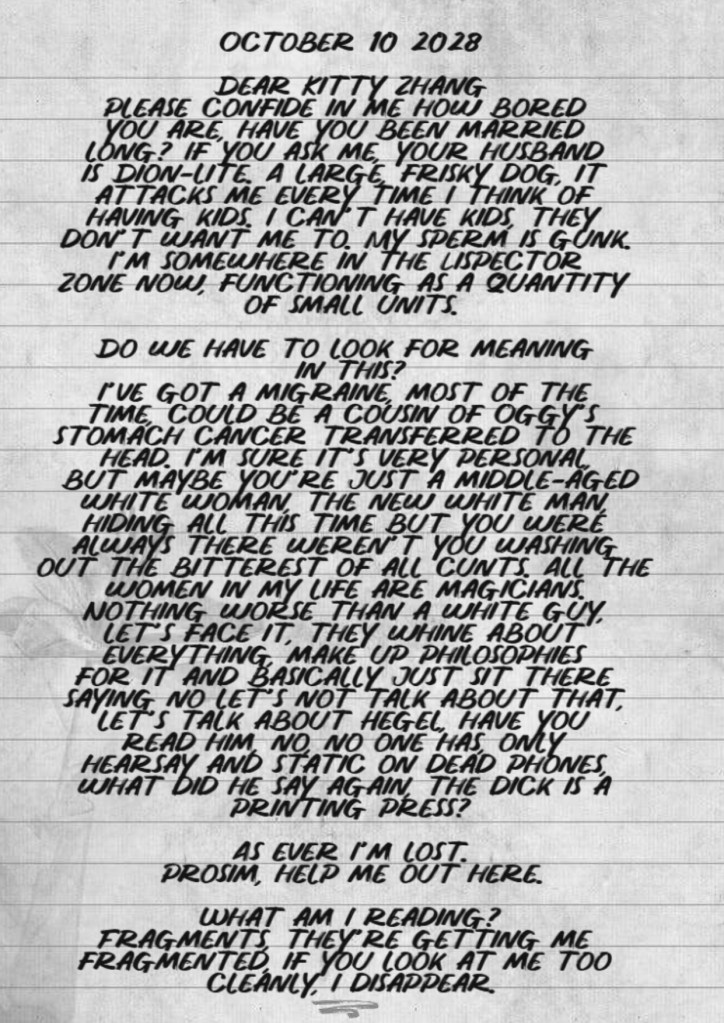 OCTOBER 10 2028
DEAR KITTY ZHANG
PLEASE CONFIDE IN ME HOW BORED
YOU ARE, HAVE YOU BEEN MARRIED
LONG? IF YOU ASK ME, YOUR HUSBAND
IS DION-LITE, A LARGE, FRISKY DOG, IT
ATTACKS ME EVERY TIME I THINK OF
HAVING KIDS, I CAN'T HAVE KIDS, THEY
DON'T WANT ME TO. MY SPERM IS GUNK.
I'M SOMEWHERE IN THE LISPECTOR
ZONE NOW, FUNCTIONING AS A QUANTITY
OF SMALL UNITS.
DO WE HAVE TO LOOK FOR MEANING
IN THIS?
I'VE GOT A MIGRAINE, MOST OF THE
TIME, COULD BE A COUSIN OF OGGY'S
STOMACH CANCER TRANSFERRED TO THE
HEAD. I'M SURE IT'S VERY PERSONAL,
BUT MAYBE YOU'RE JUST A MIDDLE-AGED
WHITE WOMAN, THE NEW WHITE MAN,
HIDING ALL THIS TIME BUT YOU WERE
ALWAYS THERE WEREN'T YOU WASHING
OUT THE BITTEREST OF ALL CUNTS. ALL THE
WOMEN IN MY LIFE ARE MAGICIANS.
NOTHING WORSE THAN A WHITE GUY,
LET'S FACE IT, THEY WHINE ABOUT
EVERYTHING, MAKE UP PHILOSOPHIES
FOR IT AND BASICALLY JUST SIT THERE
SAYING NO LET'S NOT TALK ABOUT THAT,
LET'S TALK ABOUT HEGEL, HAVE YOU
READ HIM, NO, NO ONE HAS, ONLY
HEARSAY AND STATIC ON DEAD PHONES,
WHAT DID HE SAY AGAIN, THE DICK IS A
PRINTING PRESS?
AS EVER I'M LOST.
PROSIM, HELP ME OUT HERE.
WHAT AM I READING?
FRAGMENTS, THEY'RE GETTING ME
FRAGMENTED, IF YOU LOOK AT ME TOO
CLEANLY, I DISAPPEAR.